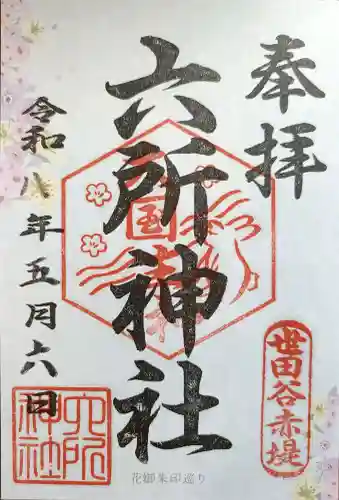 奉拝
六所神社
令和八年五月六日
世田谷赤堤
六所
神社
花御朱印巡り